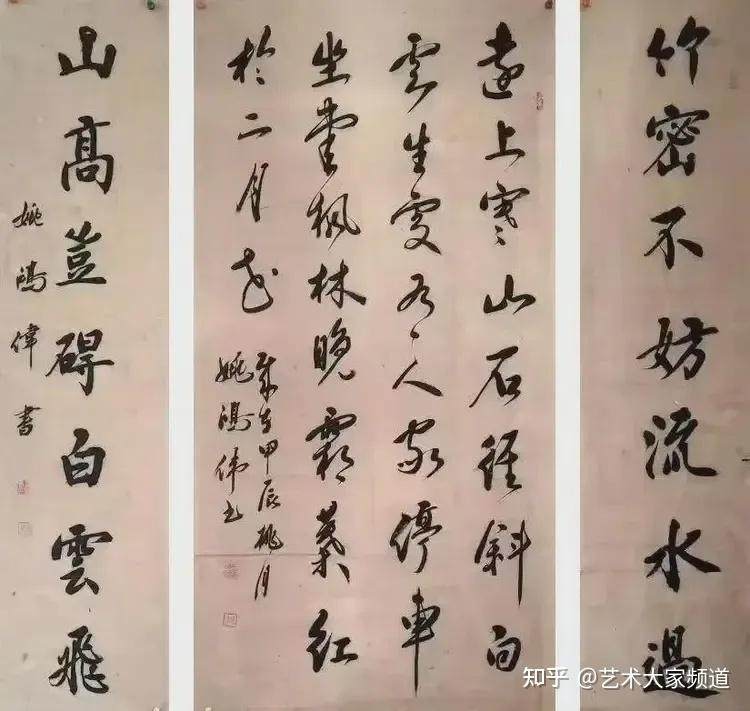 竹密不妨流水過
遠上寒山石徑斜白
雲生處有人家停車
坐愛楓林晚霜葉紅
於二月花
歲在甲辰桃月
姚鴻偉書
山髙豈碍白雲飛
姚鴻偉書
知乎 @艺术大家频道